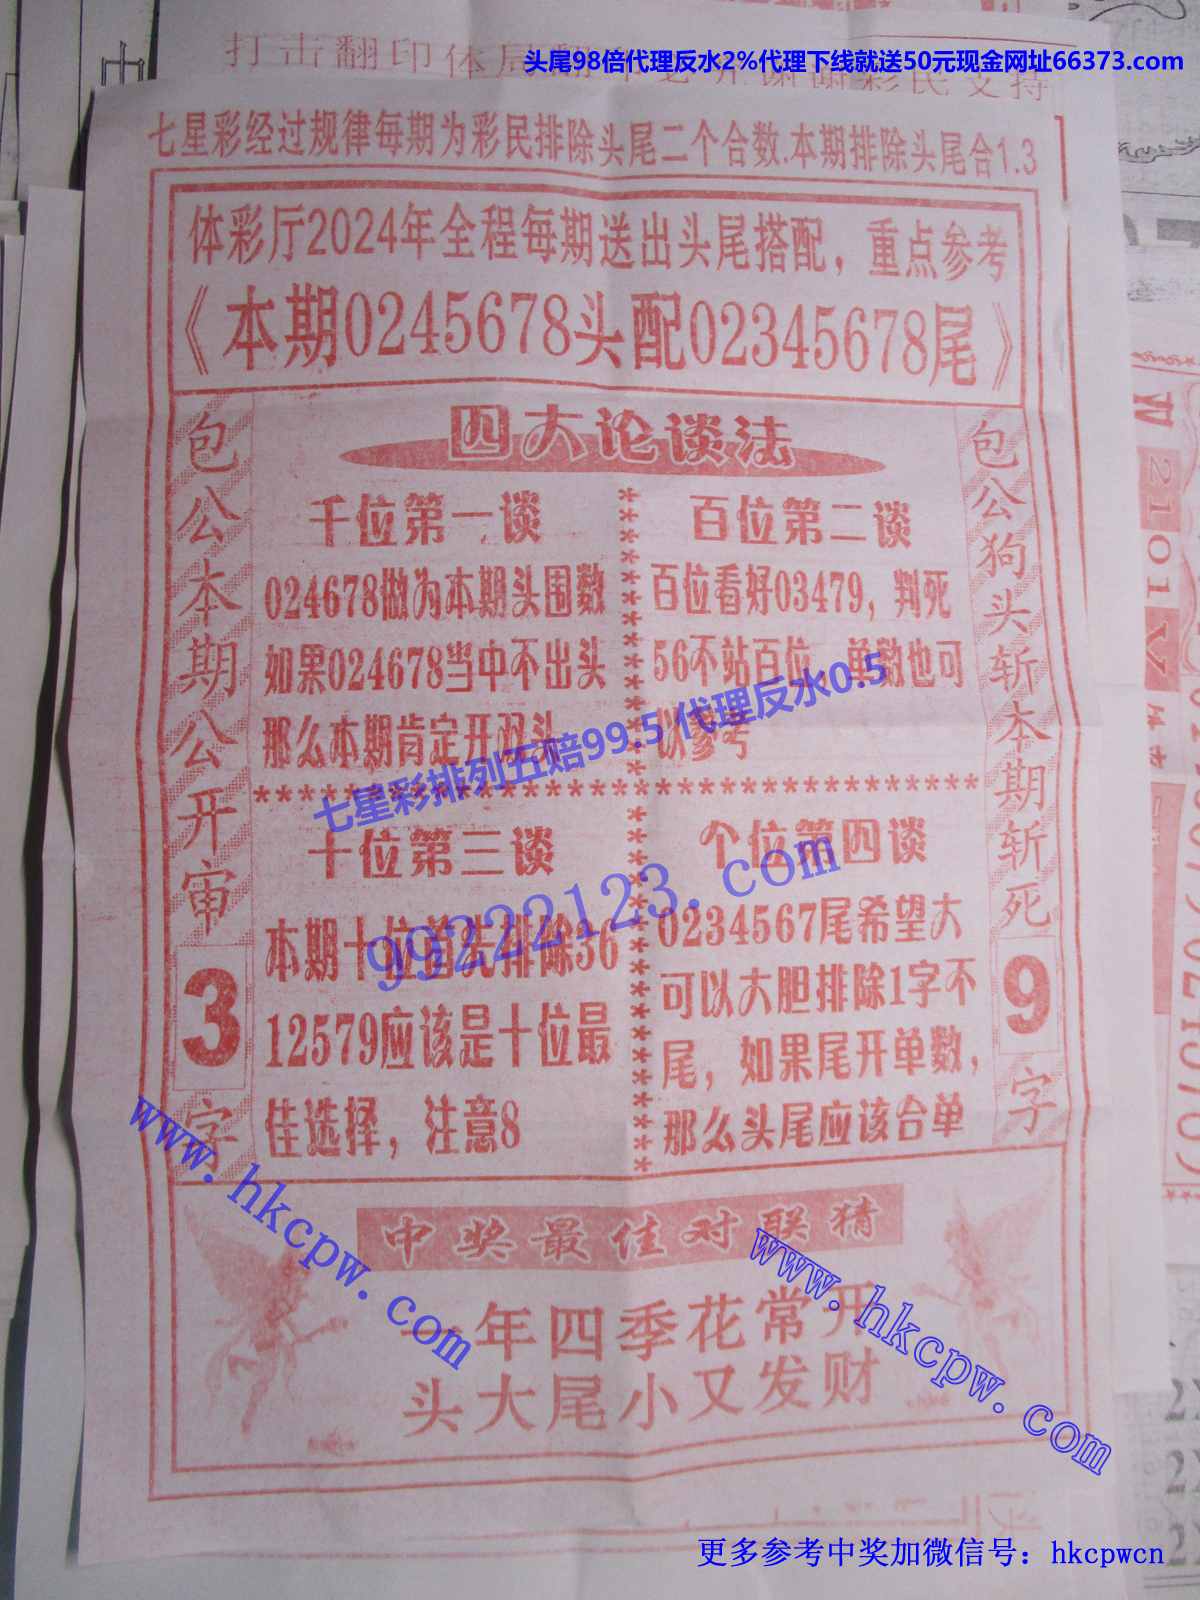 头尾98倍代理反水2%代理下线就送50元现金网址66373.com
打击翻印体局
七星彩经过规律每期为彩民排除头尾二个合数.本期排除头尾合1.3
体彩厅2024年全程每期送出头尾搭配，重点参考
《本期0245678头配02345678尾》
包公本期公开审3字
包公狗头斩本期斩死9字
四大论谈法
千位第一谈
024678做为本期头围数
如果024678当中不出头
那么本期肯定开双头
百位第二谈
百位看好03479，判死
56不站百位，单数也可
以参考
七星彩排列五赔99.5 代理反水0.5
99222123.com
十位第三谈
本期十位首先排除36
12579应该是十位最
佳选择，注意8
个位第四谈
0234567尾希望大
可以大胆排除1字不
尾，如果尾开单数，
那么头尾应该合单
中奖最佳对联猜
一年四季花常开
头大尾小又发财
www.hkcpw.com
www.hkcpw.com
更多参考中奖加微信号：hkcpwcn